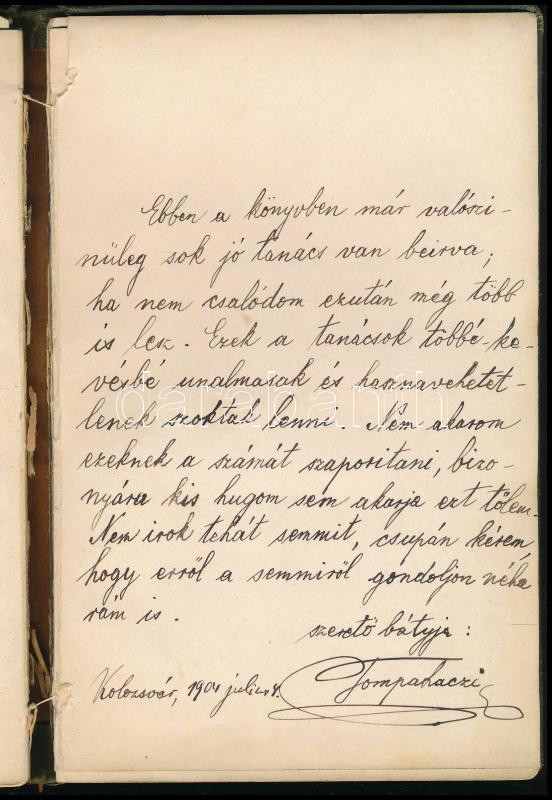 Ebben a könyvben már valószi-
nüleg sok jó tanács van beirva;
ha nem csalódom ezután még több
is lesz. Ezek a tanácsok többé-ke-
vésbé unalmasak és hasznavehetet-
lenek szoktak lenni. Nem akarom
ezeknek a számát szaporitani, bizo-
nyára kis hugom sem akarja ezt tőlem.
Nem irok tehát semmit, csupán kérem,
hogy erről a semmiről gondoljon néha
rám is.
szerető bátyja:
Kolozsvár, 1904 julius 4.
Tompahaczi
darabanth